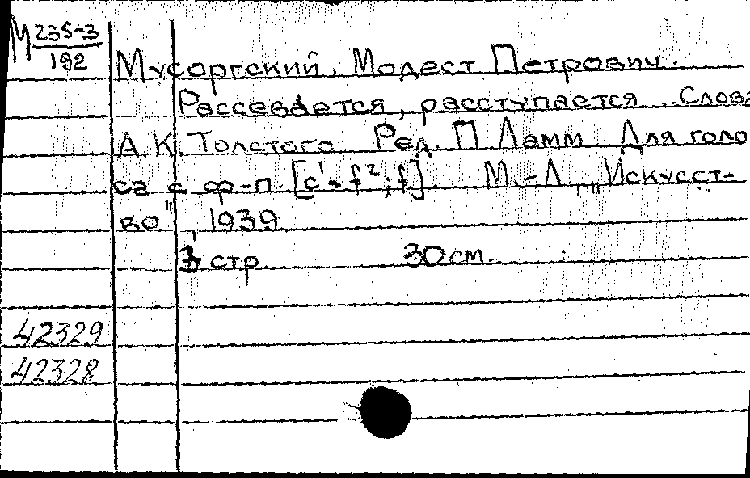 М 235-3
192
Мусоргский, Модест Петрович.
Рассевается, расступается. Слова
А.К. Толстого. Ред. П. Ламм. Для голо-
са с ф-п [c'-f²; f]. М.-Л., "Искусст-
во", 1939
3 стр. 30 см.
42329
42328